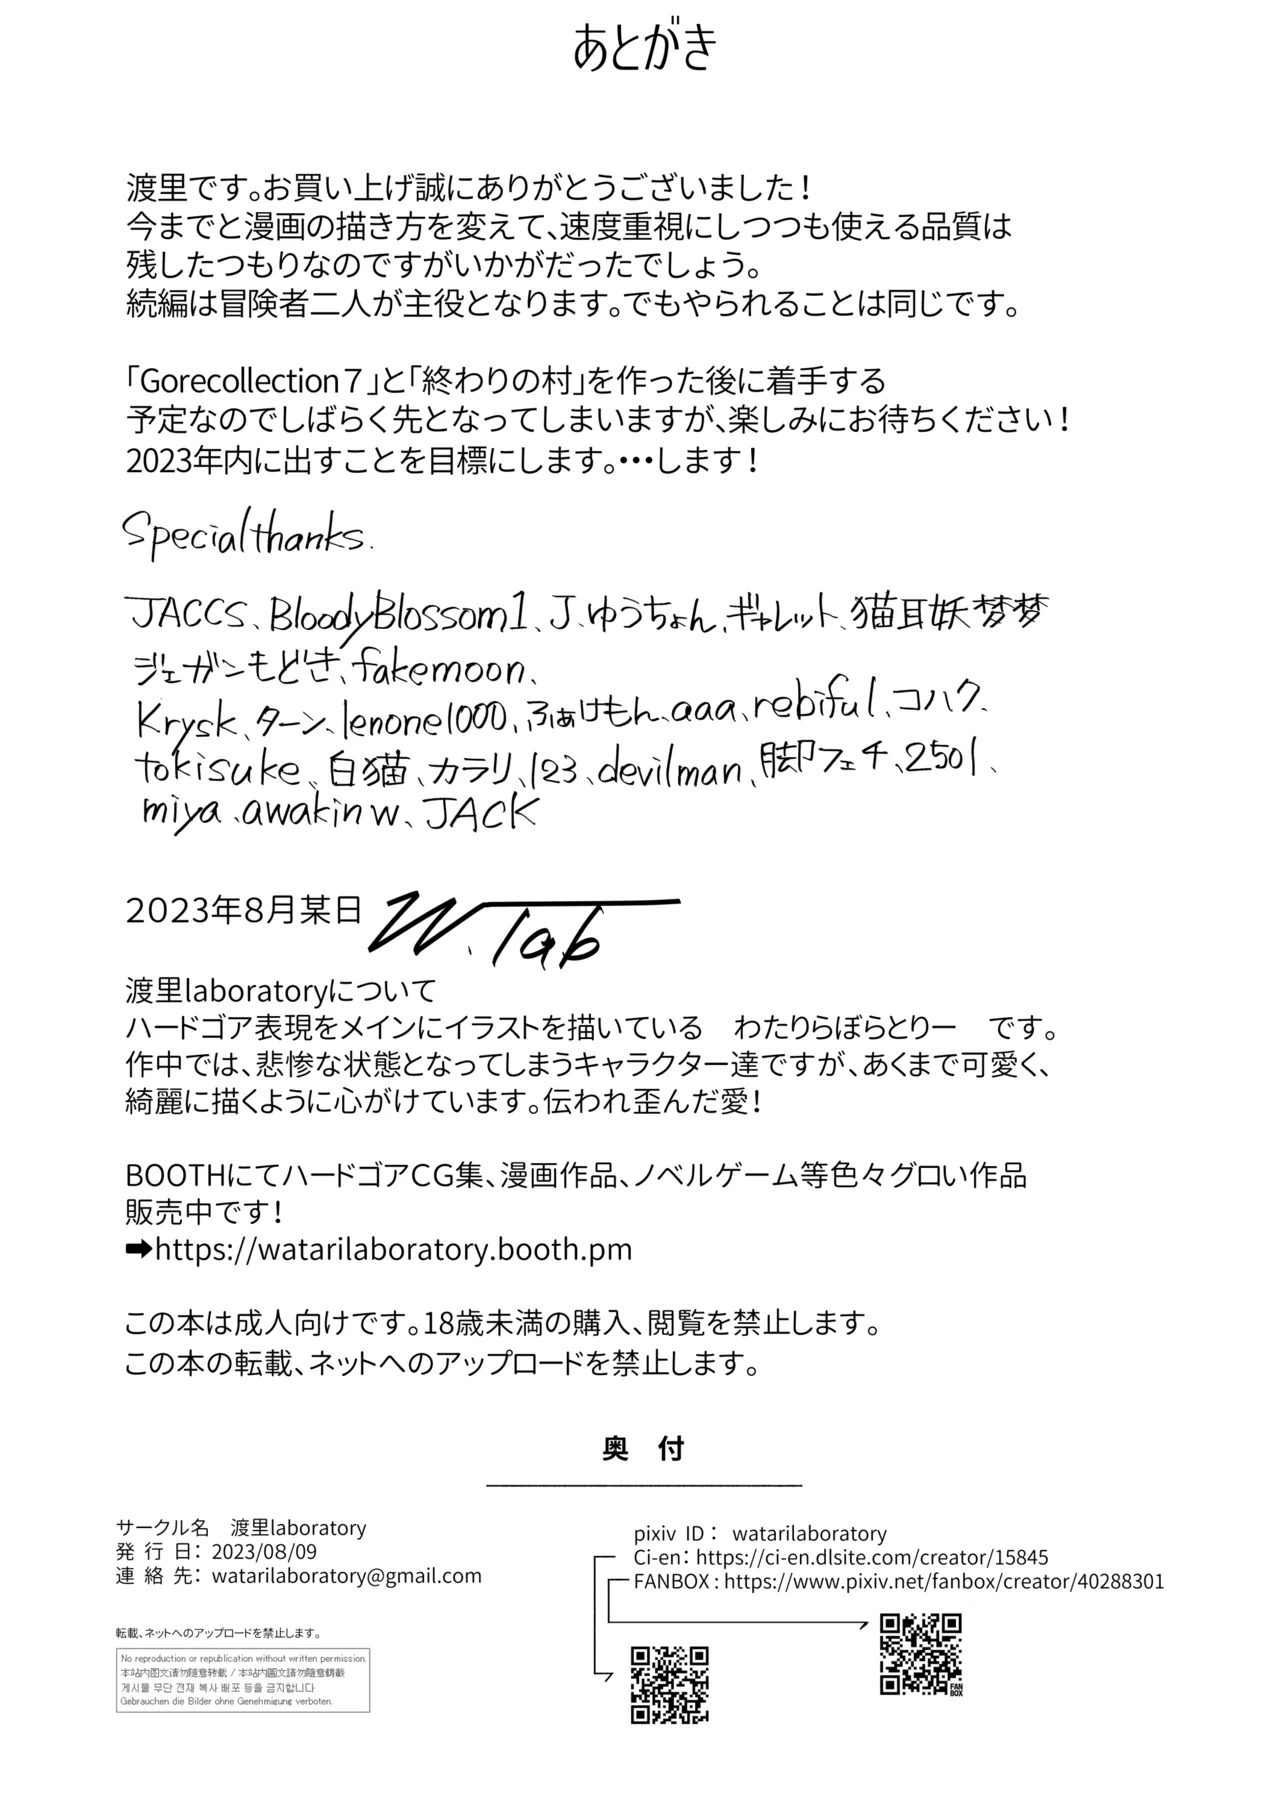 あとがき
渡里です。お買い上げ誠にありがとうございました！
今までと漫画の描き方を変えて、速度重視にしつつも使える品質は
残したつもりなのですがいかがだったでしょう。
続編は冒険者二人が主役となります。でもやられることは同じです。
「Gorecollection７」と「終わりの村」を作った後に着手する
予定なのでしばらく先となってしまいますが、楽しみにお待ちください！
2023年内に出すことを目標にします。・・・します！
Specialthanks.
JACCS、BloodyBlossom1、J、ゆうちょん、ギャレット、猫耳妖梦梦
ジェガンもどき、fakemoon、
Krysk、ターン、lenone1000、ふぁけもん、aaa、rebiful、コハク、
tokisuke、白猫、カラリ、123、devilman、脚フェチ、2501、
miya、awakinw、JACK
2023年8月某日 W.lab
渡里laboratoryについて
ハードゴア表現をメインにイラストを描いている　わたりらぼらとりー　です。
作中では、悲惨な状態となってしまうキャラクター達ですが、あくまで可愛く、
綺麗に描くように心がけています。伝われ歪んだ愛！
BOOTHにてハードゴアCG集、漫画作品、ノベルゲーム等色々グロい作品
販売中です！
➡https://watarilaboratory.booth.pm
この本は成人向けです。18歳未満の購入、閲覧を禁止します。
この本の転載、ネットへのアップロードを禁止します。
奥　付
サークル名　渡里laboratory
発 行 日： 2023/08/09
連 絡 先： watarilaboratory@gmail.com
pixiv ID： watarilaboratory
Ci-en： https://ci-en.dlsite.com/creator/15845
FANBOX : https://www.pixiv.net/fanbox/creator/40288301
転載、ネットへのアップロードを禁止します。
No reproduction or republication without written permission.
本站内图文请勿随意转载 / 本站内圖文請勿隨意轉載
게시물 무단 전재 복사 배포 등을 금지합니다
Gebrauchen die Bilder ohne Genehmigung verboten.
FAN
BOX